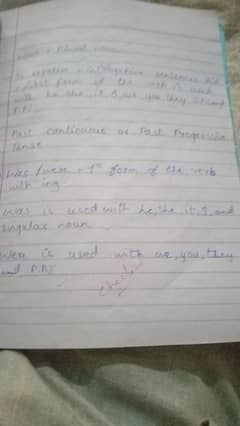 noun + Plural noun
In negative + interrogative sentences did
+ first form of the verb is used
with he, she, it I, we, you they S.N and
P.N
Past continuous or Past Progressive
Tense
Was/were + 1st form of the verb
with ing
was is used with he, she it, I, and
singular noun
Were is used with we, you, they
and P.N
Checked